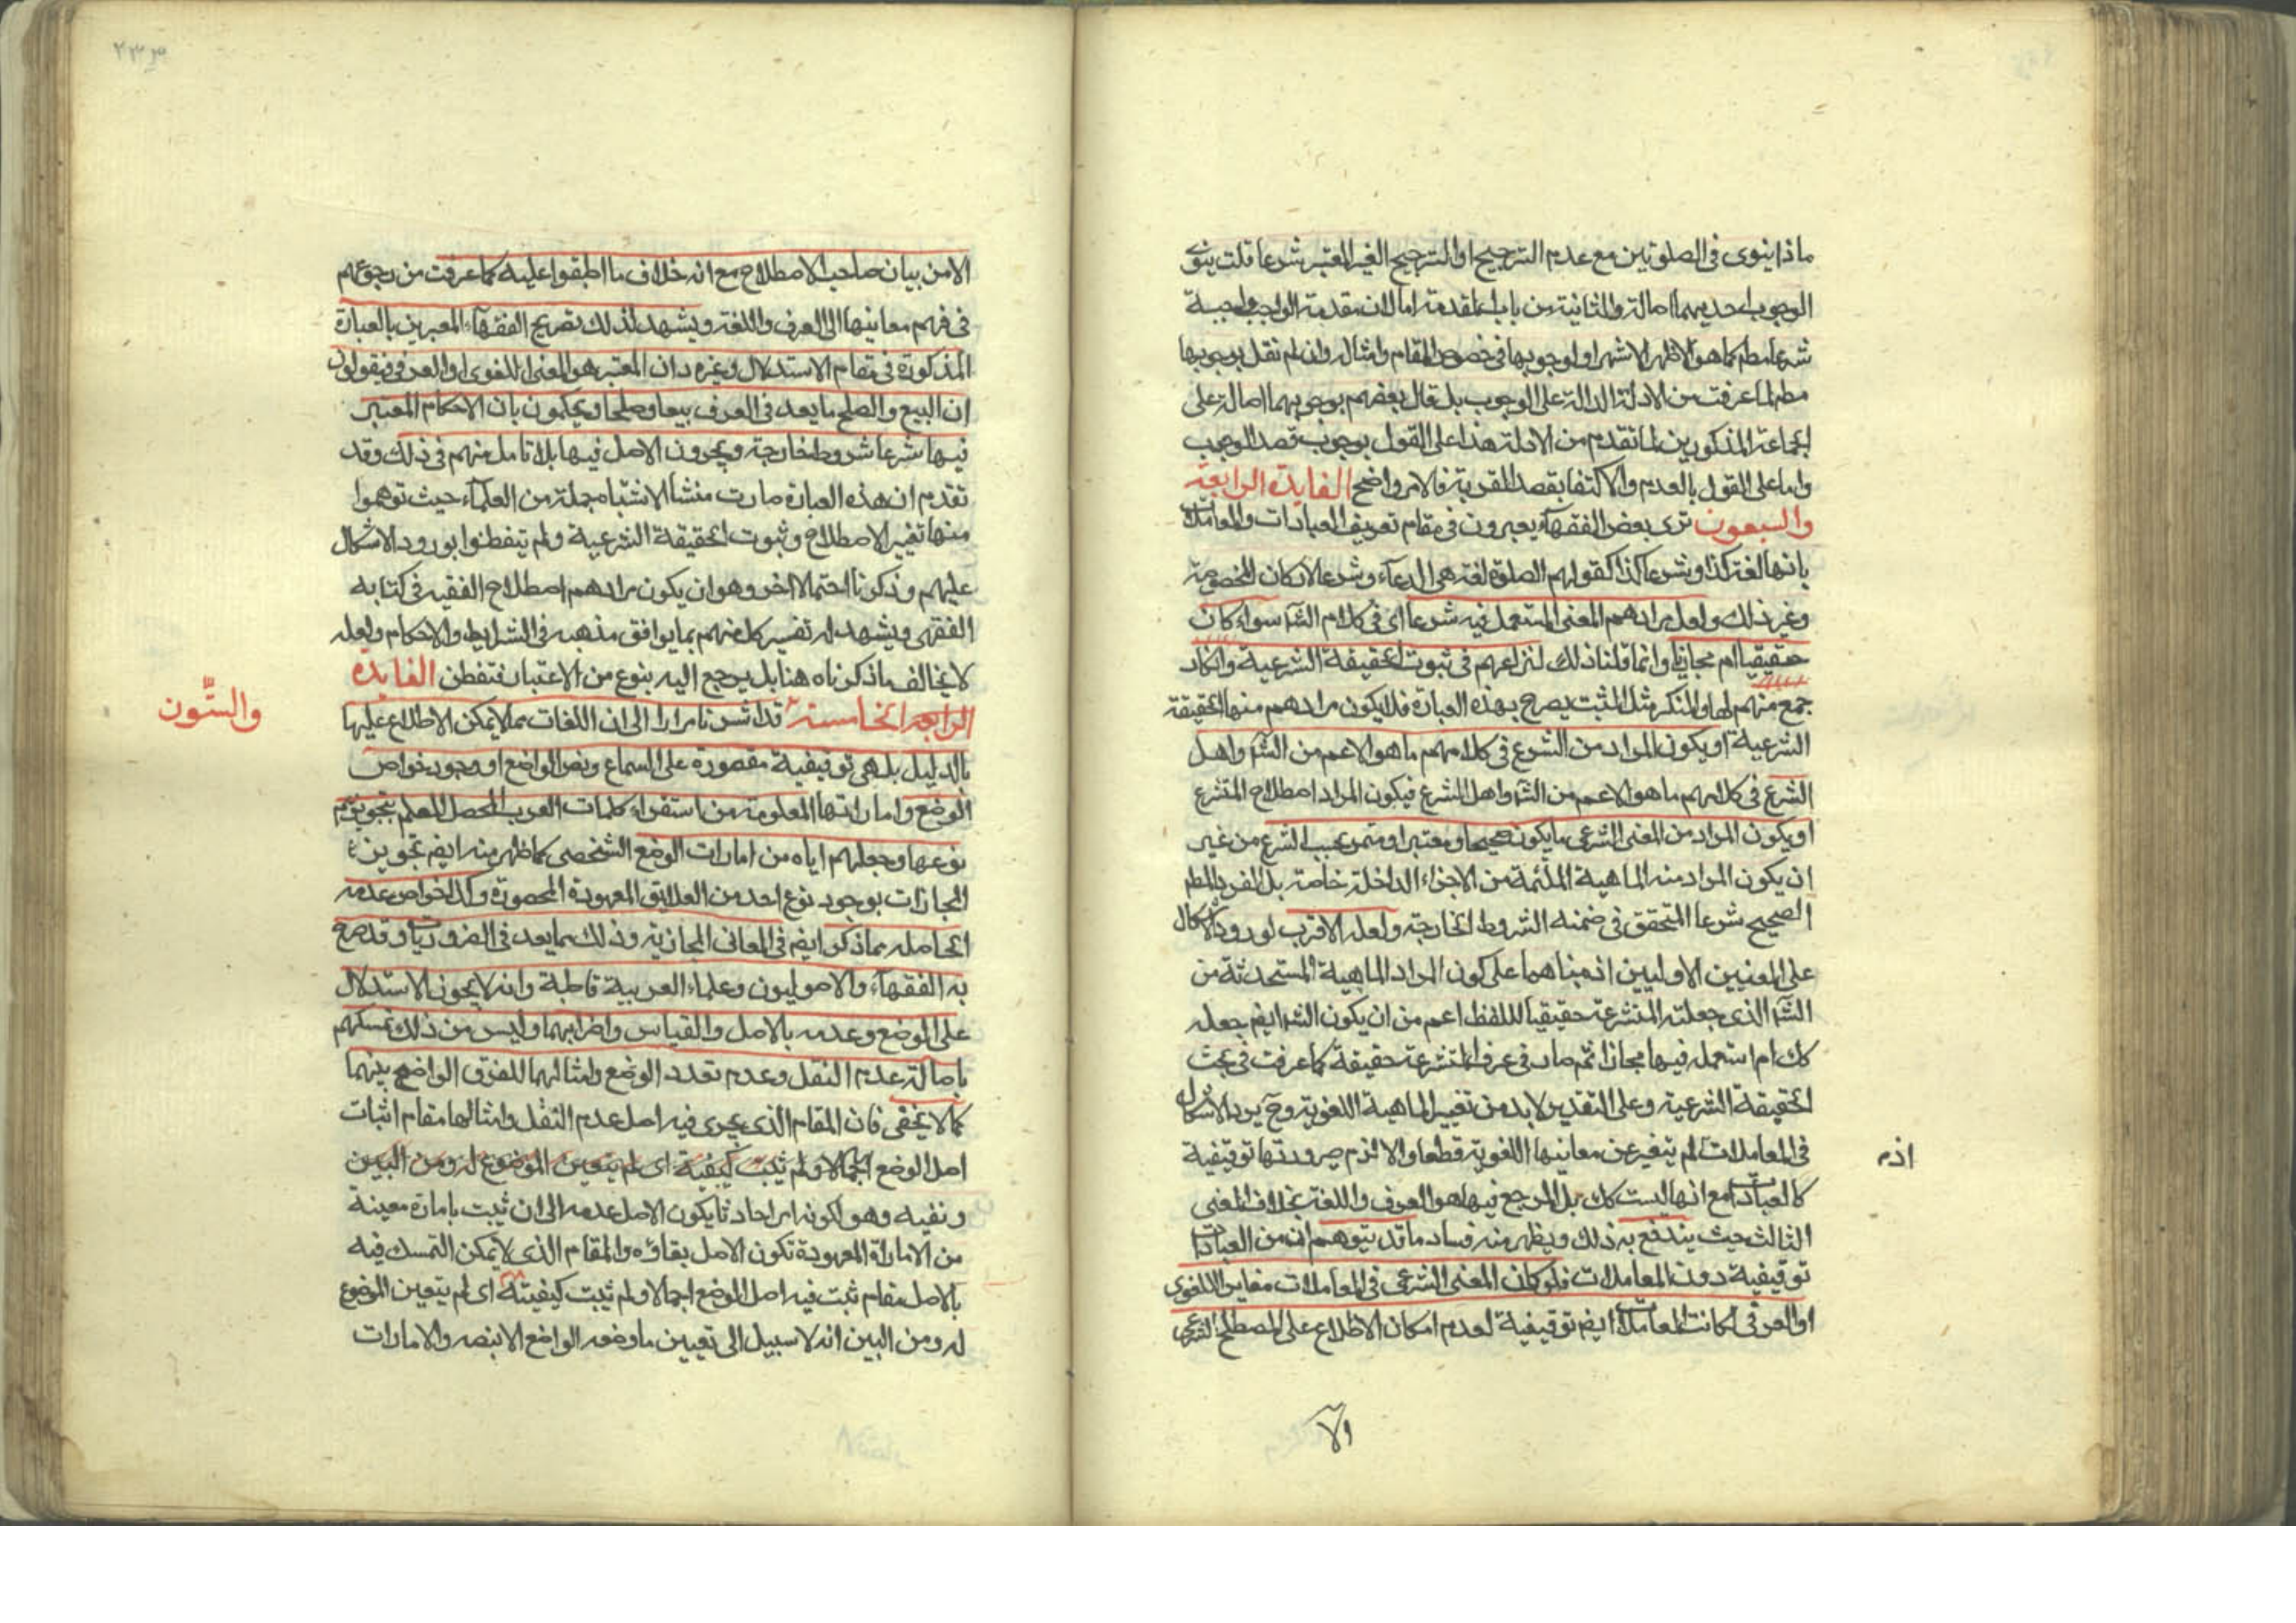 ماذا ينوى فى الصلوتين مع عدم الترجيح او الترجيح الغير المعتبر شرعا قلت ينوى
الوجوب احديهما اصالة والثانية من باب المقدمة اما لان مقدمة الواجب واجبة
شرعا مطم كما هو الاظهر الاشهر او لوجوبها فى خصوص المقام وامثاله وان لم نقل بوجوبها
مطم لما عرفت من الادلة الدالة على الوجوب بل قال بعضهم بوجوبهما اصالة على
الجماعة المذكورين لما تقدم من الادلة هذا على القول بوجوب قصد الوجوب
واما على القول بالعدم والاكتفا بقصد القربة فالامر واضح الفايدة الرابعة
والسبعون ترى بعض الفقهاء يعبرون فى مقام تعريف العبادات والمعاملات
بانها لغة كذا وشرعا كذا كقولهم الصلوة لغة هى الدعاء وشرعا الاركان المخصوصة
وغير ذلك ولعل مرادهم المعنى المستعمل فيه شرعا اى فى كلام الشا سواء كان
حقيقيا ام مجازيا وانما قلنا ذلك لنزاعهم فى ثبوت الحقيقة الشرعية وانكار
جمع منهم لها والمنكر مثل المثبت يصرح بهذه العبارة فلا يكون مرادهم منها الحقيقة
الشرعية او يكون المراد من الشرع فى كلامهم ما هو الاعم من الشا واهل
الشرع فى كلامهم ما هو الاعم من الشا واهل الشرع فيكون المراد اصطلاح المتشرع
او يكون المراد من المعنى الشرعى ما يكون صحيحا ومعتبرا ومثمر بحسب الشرع من غير
ان يكون المراد منه الماهية الملئمة من الاجزاء الداخلة خاصة بل الفرد المطم
الصحيح شرعا المتحقق فى ضمنه الشروط الخارجة ولعله الاقرب لورود الاشكال
على المعنيين الاوليين اذ بناهما على كون المراد الماهية المستحدثة من
الشا الذى جعلته المتشرعة حقيقيا للفظ اعم من ان يكون الشا ايضم جعله
كك ام استعمله فيها مجازا ثم صار فى عرف المتشرعة حقيقة كما عرفت فى بحث
الحقيقة الشرعية وعلى التقدير لابد من تغيير الماهية اللغوية وح يرد الاشكال
فى المعاملات لم يتغير عن معانيها اللغوية قطعا والا لزم صيرورتها توقيفية
اذ
كالعبادات مع انها ليست كك بل المرجع فيها هو العرف واللغة بخلاف المعنى
الثالث حيث يندفع به ذلك ويظهر منه فساد ما قد يتوهم ان من العبادات
توقيفية دون المعاملات فلو كان المعنى الشرعى فى المعاملات مغاير اللغوى
او العرفى لكانت المعاملات ايضم توقيفية لعدم امكان الاطلاع على المصطلح الشرعى
الا
الا من بيان صاحب الاصطلاح مع انه خلاف ما اطبقوا عليه كما عرفت من رجوعهم
فى فهم معانيها الى العرف واللغة ويشهد لذلك تصريح الفقهاء المعبرين بالعبارة
المذكورة فى مقام الاستدلال وغيره دان المعتبر هو المعنى اللغوى او العرفى فيقولون
ان البيع والصلح ما يعد فى العرف بيعا وصلحا ويحكمون بان الاحكام المعتبر
فيها شرعا شروط خارجة ويجرون الاصل فيها بلا تامل منهم فى ذلك وقد
تقدم ان هذه العبارة صارت منشأ لاشتباه جملة من العلماء حيث توهموا
منها تغيير الاصطلاح وثبوت الحقيقة الشرعية ولم يتفطنوا بورود الاشكال
عليهم وذكرنا احتمالا اخر وهو ان يكون مرادهم اصطلاح الفقيه فى كتابه
الفقهى ويشهد له تفسير كل منهم بما يوافق مذهبه فى الشرايط والاحكام ولعله
لا يخالف ما ذكرناه هنا بل يرجع اليه بنوع من الاعتبار فتفطن الفايدة
الرابعة الخامسة قد اشرنا مرارا الى ان اللغات مما لا يمكن الاطلاع عليها
والستّون
بالدليل بل هى توقيفية مقصورة على السماع ونص الواضع او وجود خواص
الوضع واماراتها المعلومة من استقراء كلمات العرب المحصل للعلم بتجويزهم
نوعها وجعلهم اياه من امارات الوضع الشخصى كما ظهر منه ايضم تجويز
المجازات بوجود نوع احد من العلايق المعهودة المحصورة وكذا خواص عدمه
الحاصلة بما ذكر ايضم فى المعانى المجازية وذلك مما يعد فى الضروريات وقد صرح
به الفقهاء والاصوليون وعلماء العربية قاطبة وانه لا يجوز الاستدلال
على الوضع وعدمه بالاصل والقياس واضرابهما وليس من ذلك تمسكهم
باصالة عدم النقل وعدم تعدد الوضع وامثالهما للفرق الواضح بينهما
كما لا يخفى فان المقام الذى يجرى فيه اصل عدم النقل وامثالها مقام اثبات
اصل الوضع اجمالا ولم يثبت كيفية اى لم يتعين الموضوع له ومن البين
ونفيه وهو لكونه امرا حادثا يكون الاصل عدمه الى ان ثبت بامارة معينة
من الامارات المعهودة تكون الاصل بقاؤه والمقام الذى لا يمكن التمسك فيه
بالاصل مقام ثبت فيه اصل الوضع اجمالا ولم يثبت كيفيته اى لم يتعين الموضوع
له ومن البين انه لا سبيل الى تعيين ما وضعه الواضع الا بنصه والامارات